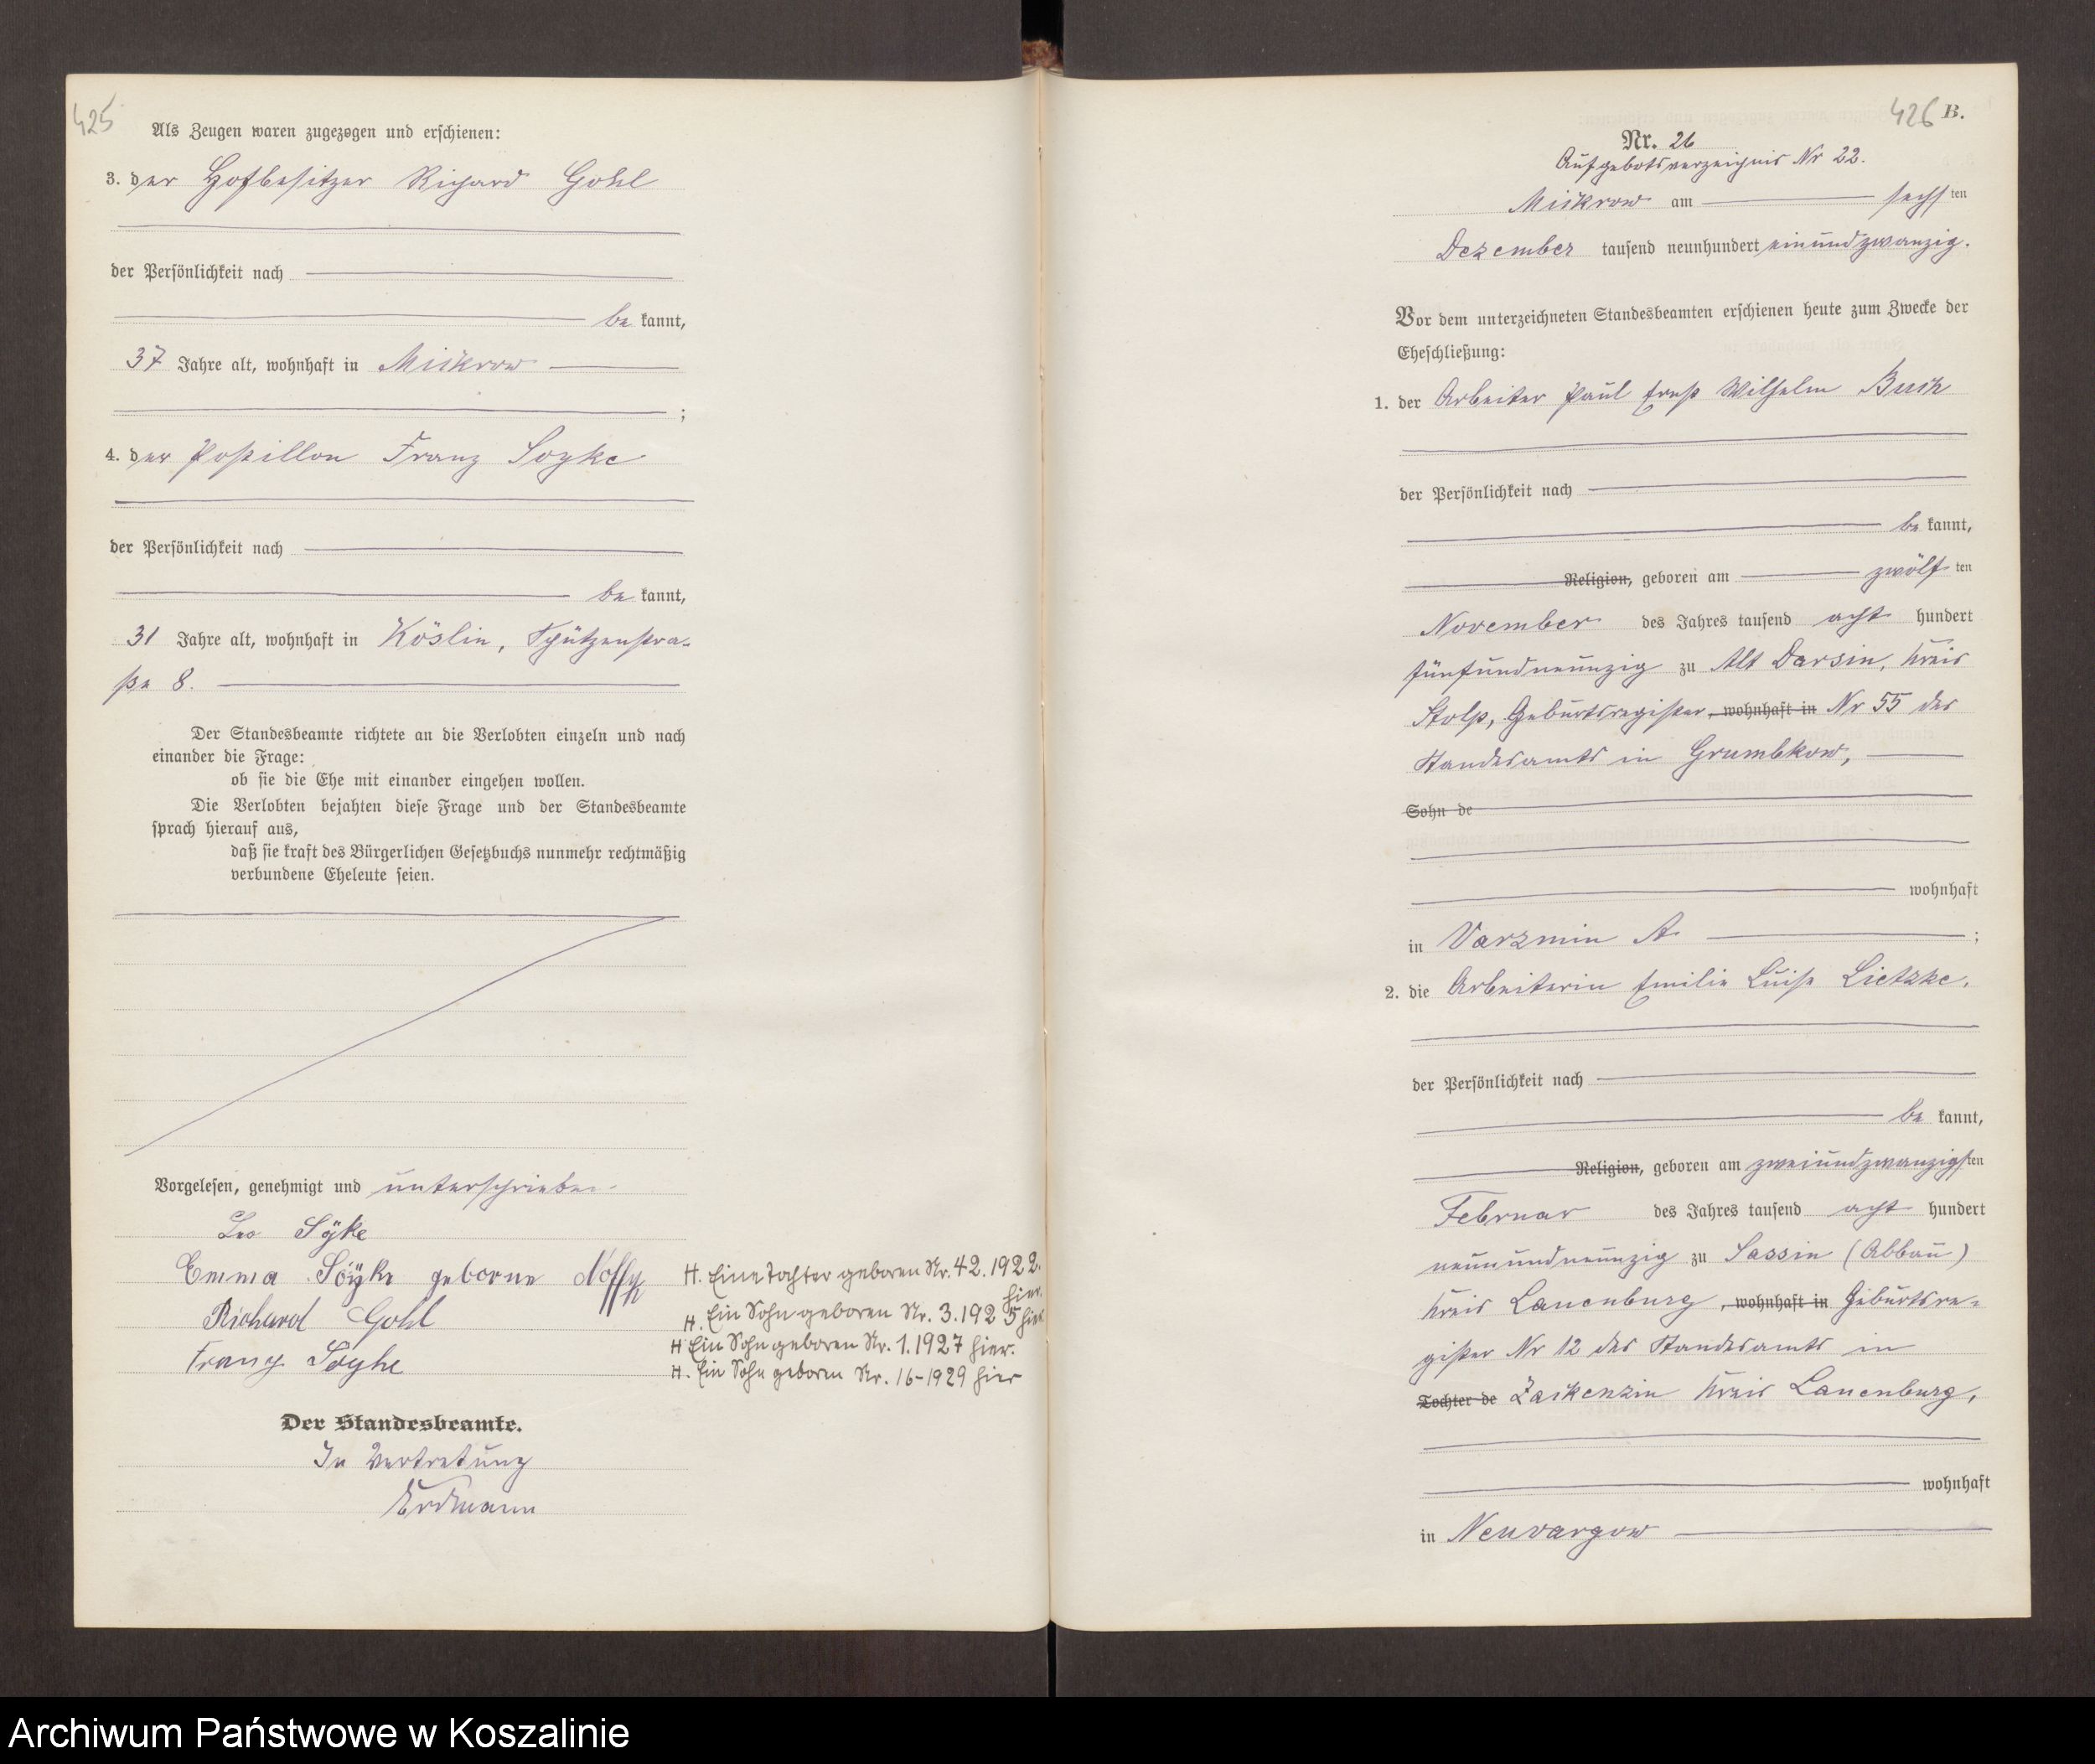 425
Als Zeugen waren zugezogen und erschienen:
3. der Hofbesitzer Richard Gohl
der Persönlichkeit nach
be kannt,
37 Jahre alt, wohnhaft in Mickrow
;
4. der Postillon Franz Soyke
der Persönlichkeit nach
be kannt,
31 Jahre alt, wohnhaft in Köslin, Schützenstra-
ße 8.
Der Standesbeamte richtete an die Verlobten einzeln und nach
einander die Frage:
ob sie die Ehe mit einander eingehen wollen.
Die Verlobten bejahten diese Frage und der Standesbeamte
sprach hierauf aus,
daß sie kraft des Bürgerlichen Gesetzbuchs nunmehr rechtmäßig
verbundene Eheleute seien.
Vorgelesen, genehmigt und unterschrieben
Leo Syke
Emma Söyke geborne Noffz
Richard Gohl
Franz Soyke
H. Eine Tochter geboren Nr. 42. 1922.
hier.
H. Ein Sohn geboren Nr. 3. 1925 hier
H Ein Sohn geboren Nr. 1. 1927 hier.
H. Ein Sohn geboren Nr. 16-1929 hier
Der Standesbeamte.
In Vertretung
Erdmann
426 B.
Nr. 26
Aufgebotsverzeichnis Nr 22.
Mickrow am sechs ten
Dezember tausend neunhundert einundzwanzig.
Vor dem unterzeichneten Standesbeamten erschienen heute zum Zwecke der
Eheschließung:
1. der Arbeiter Paul Ernst Wilhelm Buck
der Persönlichkeit nach
be kannt,
Religion, geboren am zwölf ten
November des Jahres tausend acht hundert
fünfundneunzig zu Alt Darsin, Kreis
Stolp, Geburtsregister, wohnhaft in Nr 55 des
Standesamts in Grumbkow,
Sohn de
wohnhaft
in Varzmin A. ;
2. die Arbeiterin Emilie Luise Lietzke,
der Persönlichkeit nach
be kannt,
Religion, geboren am zweiundzwanzigsten
Februar des Jahres tausend acht hundert
neunundneunzig zu Sassin (Abbau)
Kreis Lauenburg, wohnhaft in Geburtsre-
gister Nr 12 des Standesamts in
Tochter de Zackenzin Kreis Lauenburg,
wohnhaft
in Neuvargow
Archiwum Państwowe w Koszalinie